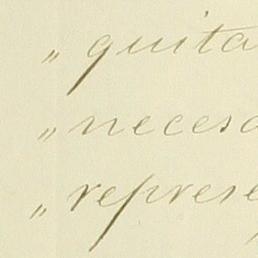 „ quita
„ necesa
„ represe